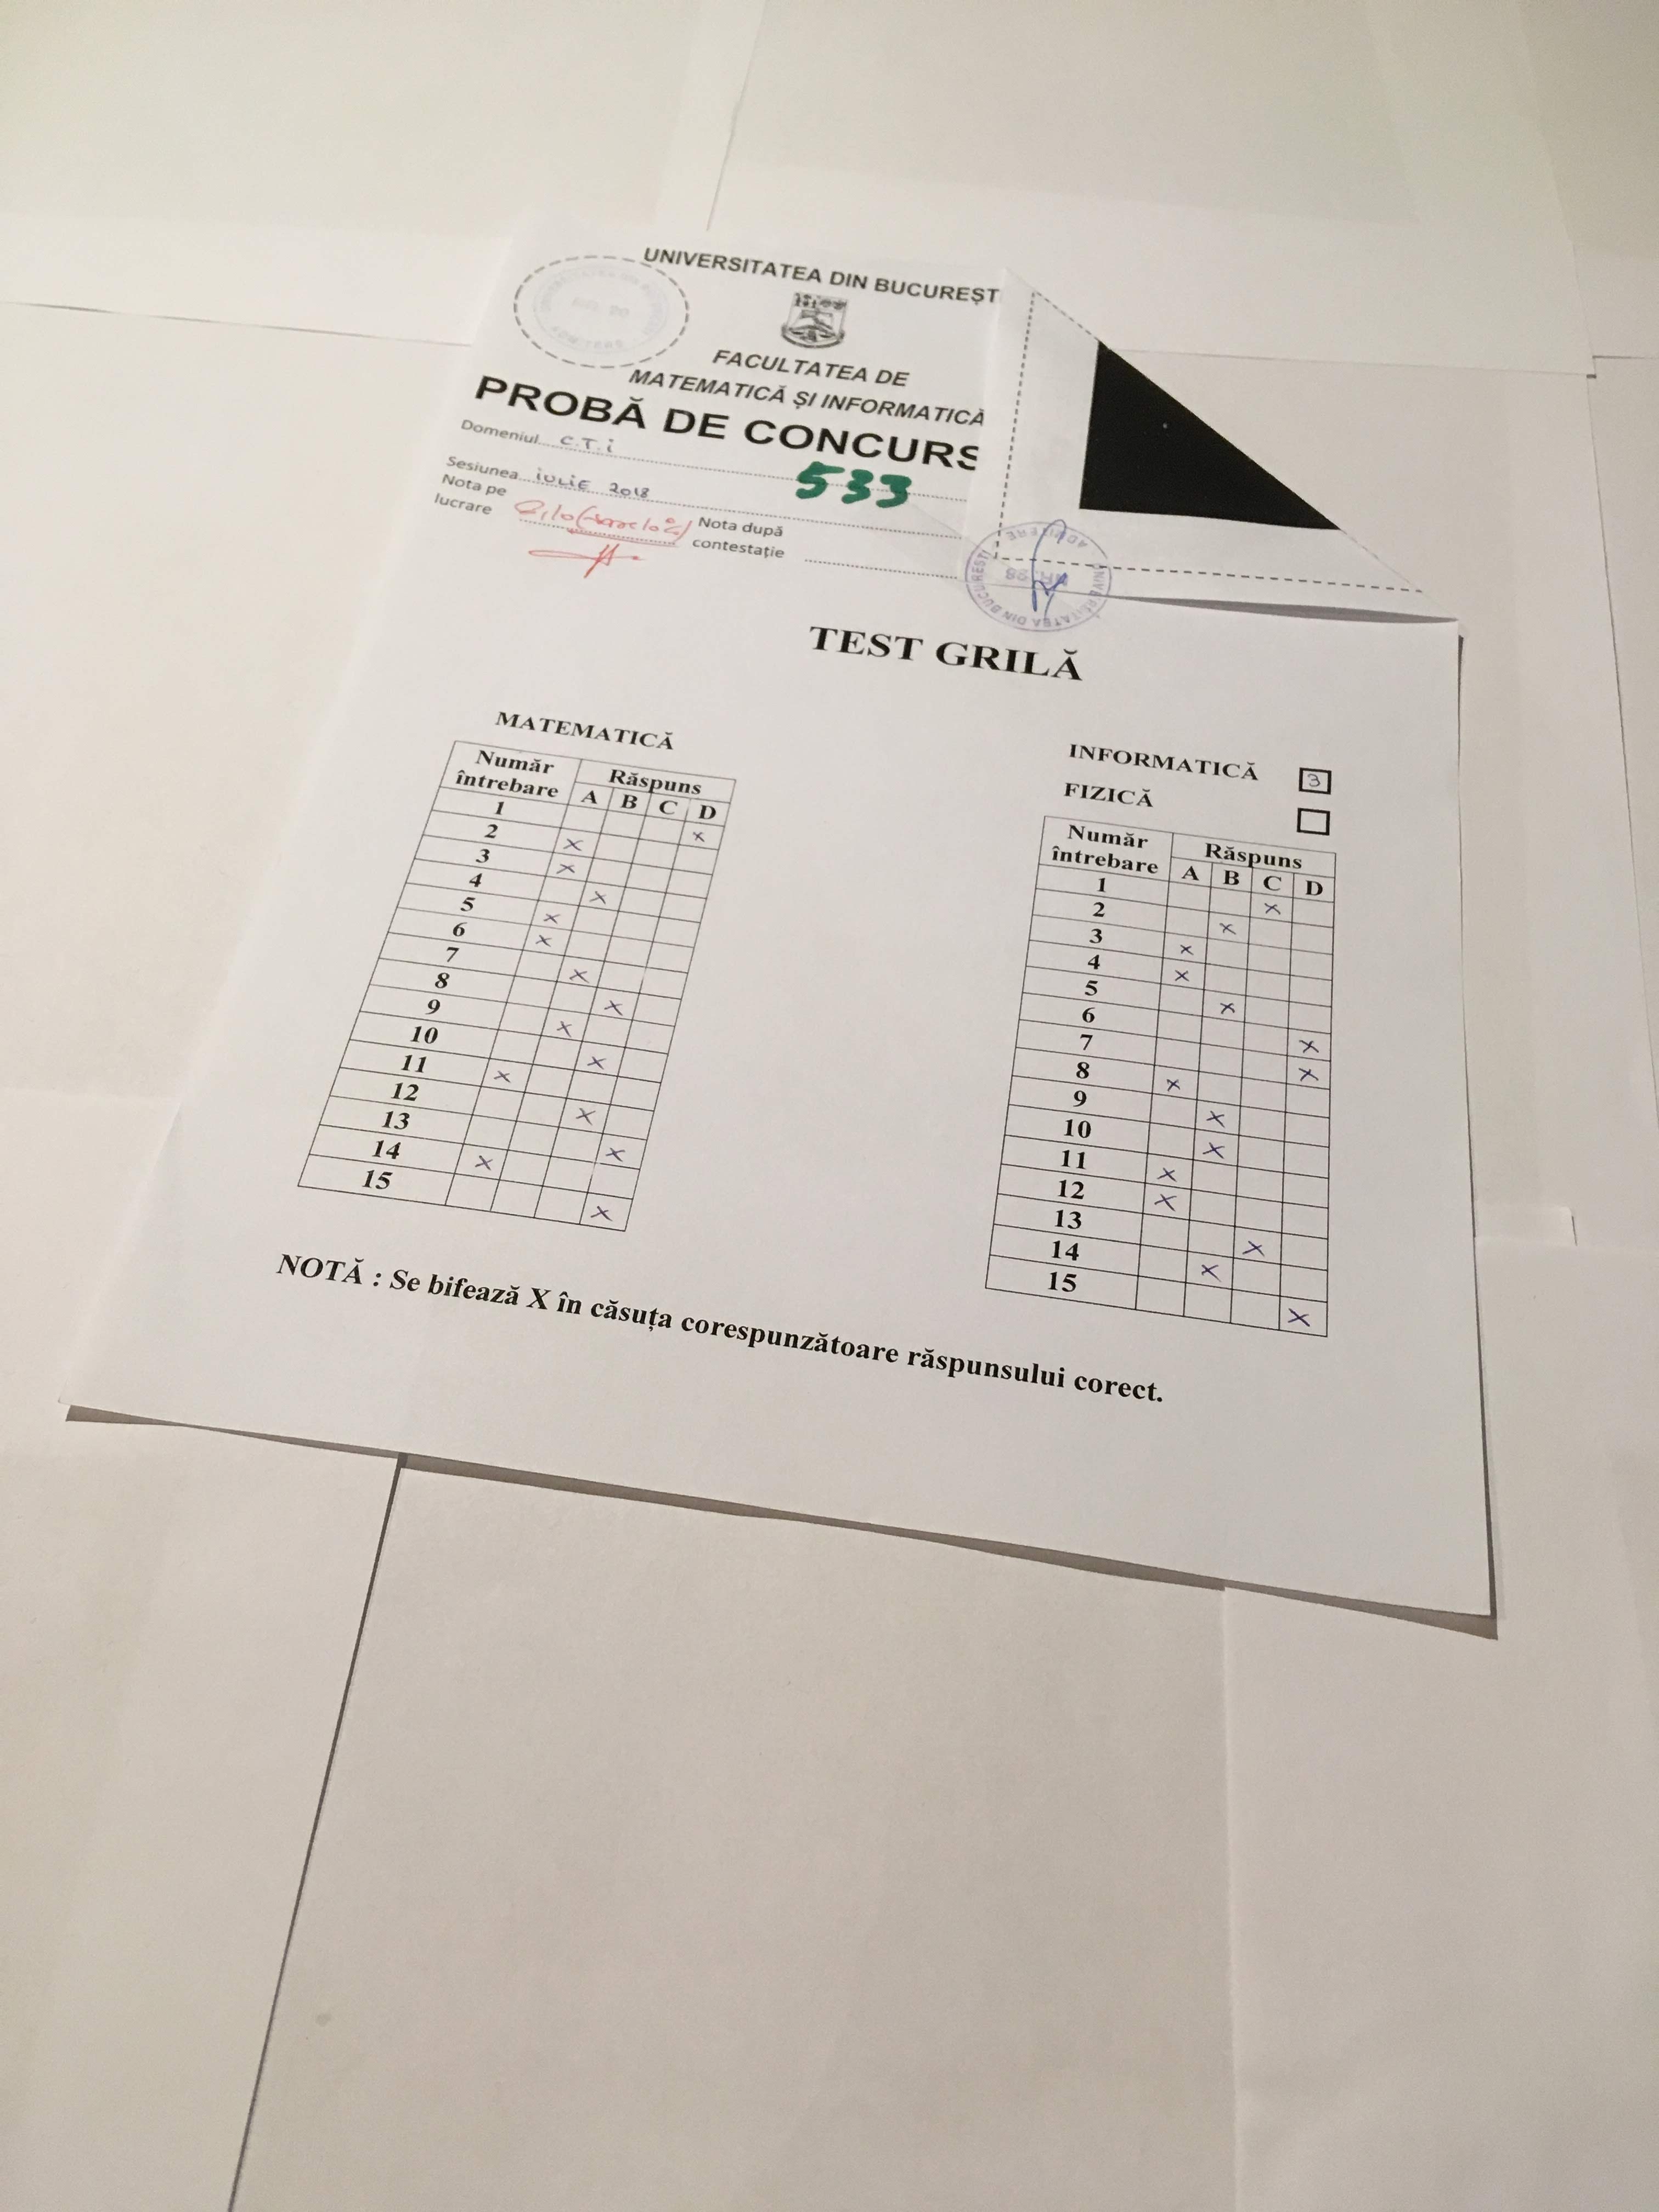 UNIVERSITATEA DIN BUCUREȘT
FACULTATEA DE
MATEMATICĂ ȘI INFORMATICĂ
PROBĂ DE CONCURS
Domeniul C.T.i
533
Sesiunea iULiE 2018
Nota pe lucrare
Nota după contestație
UNIVERSITATEA DIN BUCUREȘTI
ADMITERE
NR. 98
TEST GRILĂ
MATEMATICĂ
Număr întrebare Răspuns
A B C D
1 x
2 x
3 x
4 x
5 x
6 x
7 x
8 x
9 x
10 x
11 x
12 x
13 x
14 x
15 x
INFORMATICĂ 3
FIZICĂ
Număr întrebare Răspuns
A B C D
1 x
2 x
3 x
4 x
5 x
6 x
7 x
8 x
9 x
10 x
11 x
12 x
13 x
14 x
15 x
NOTĂ : Se bifează X în căsuța corespunzătoare răspunsului corect.